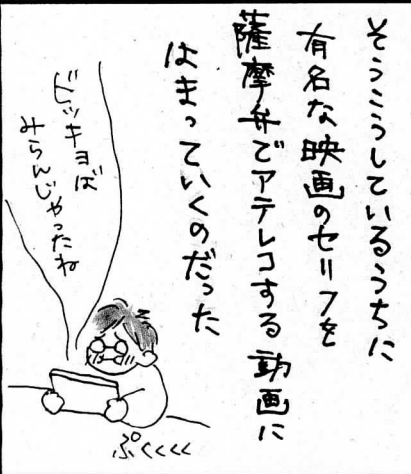 そうこうしているうちに
有名な映画のセリフを
薩摩弁でアテレコする動画に
はまっていくのだった
ビッキョば
みらんじゃったね
ぷくくくく